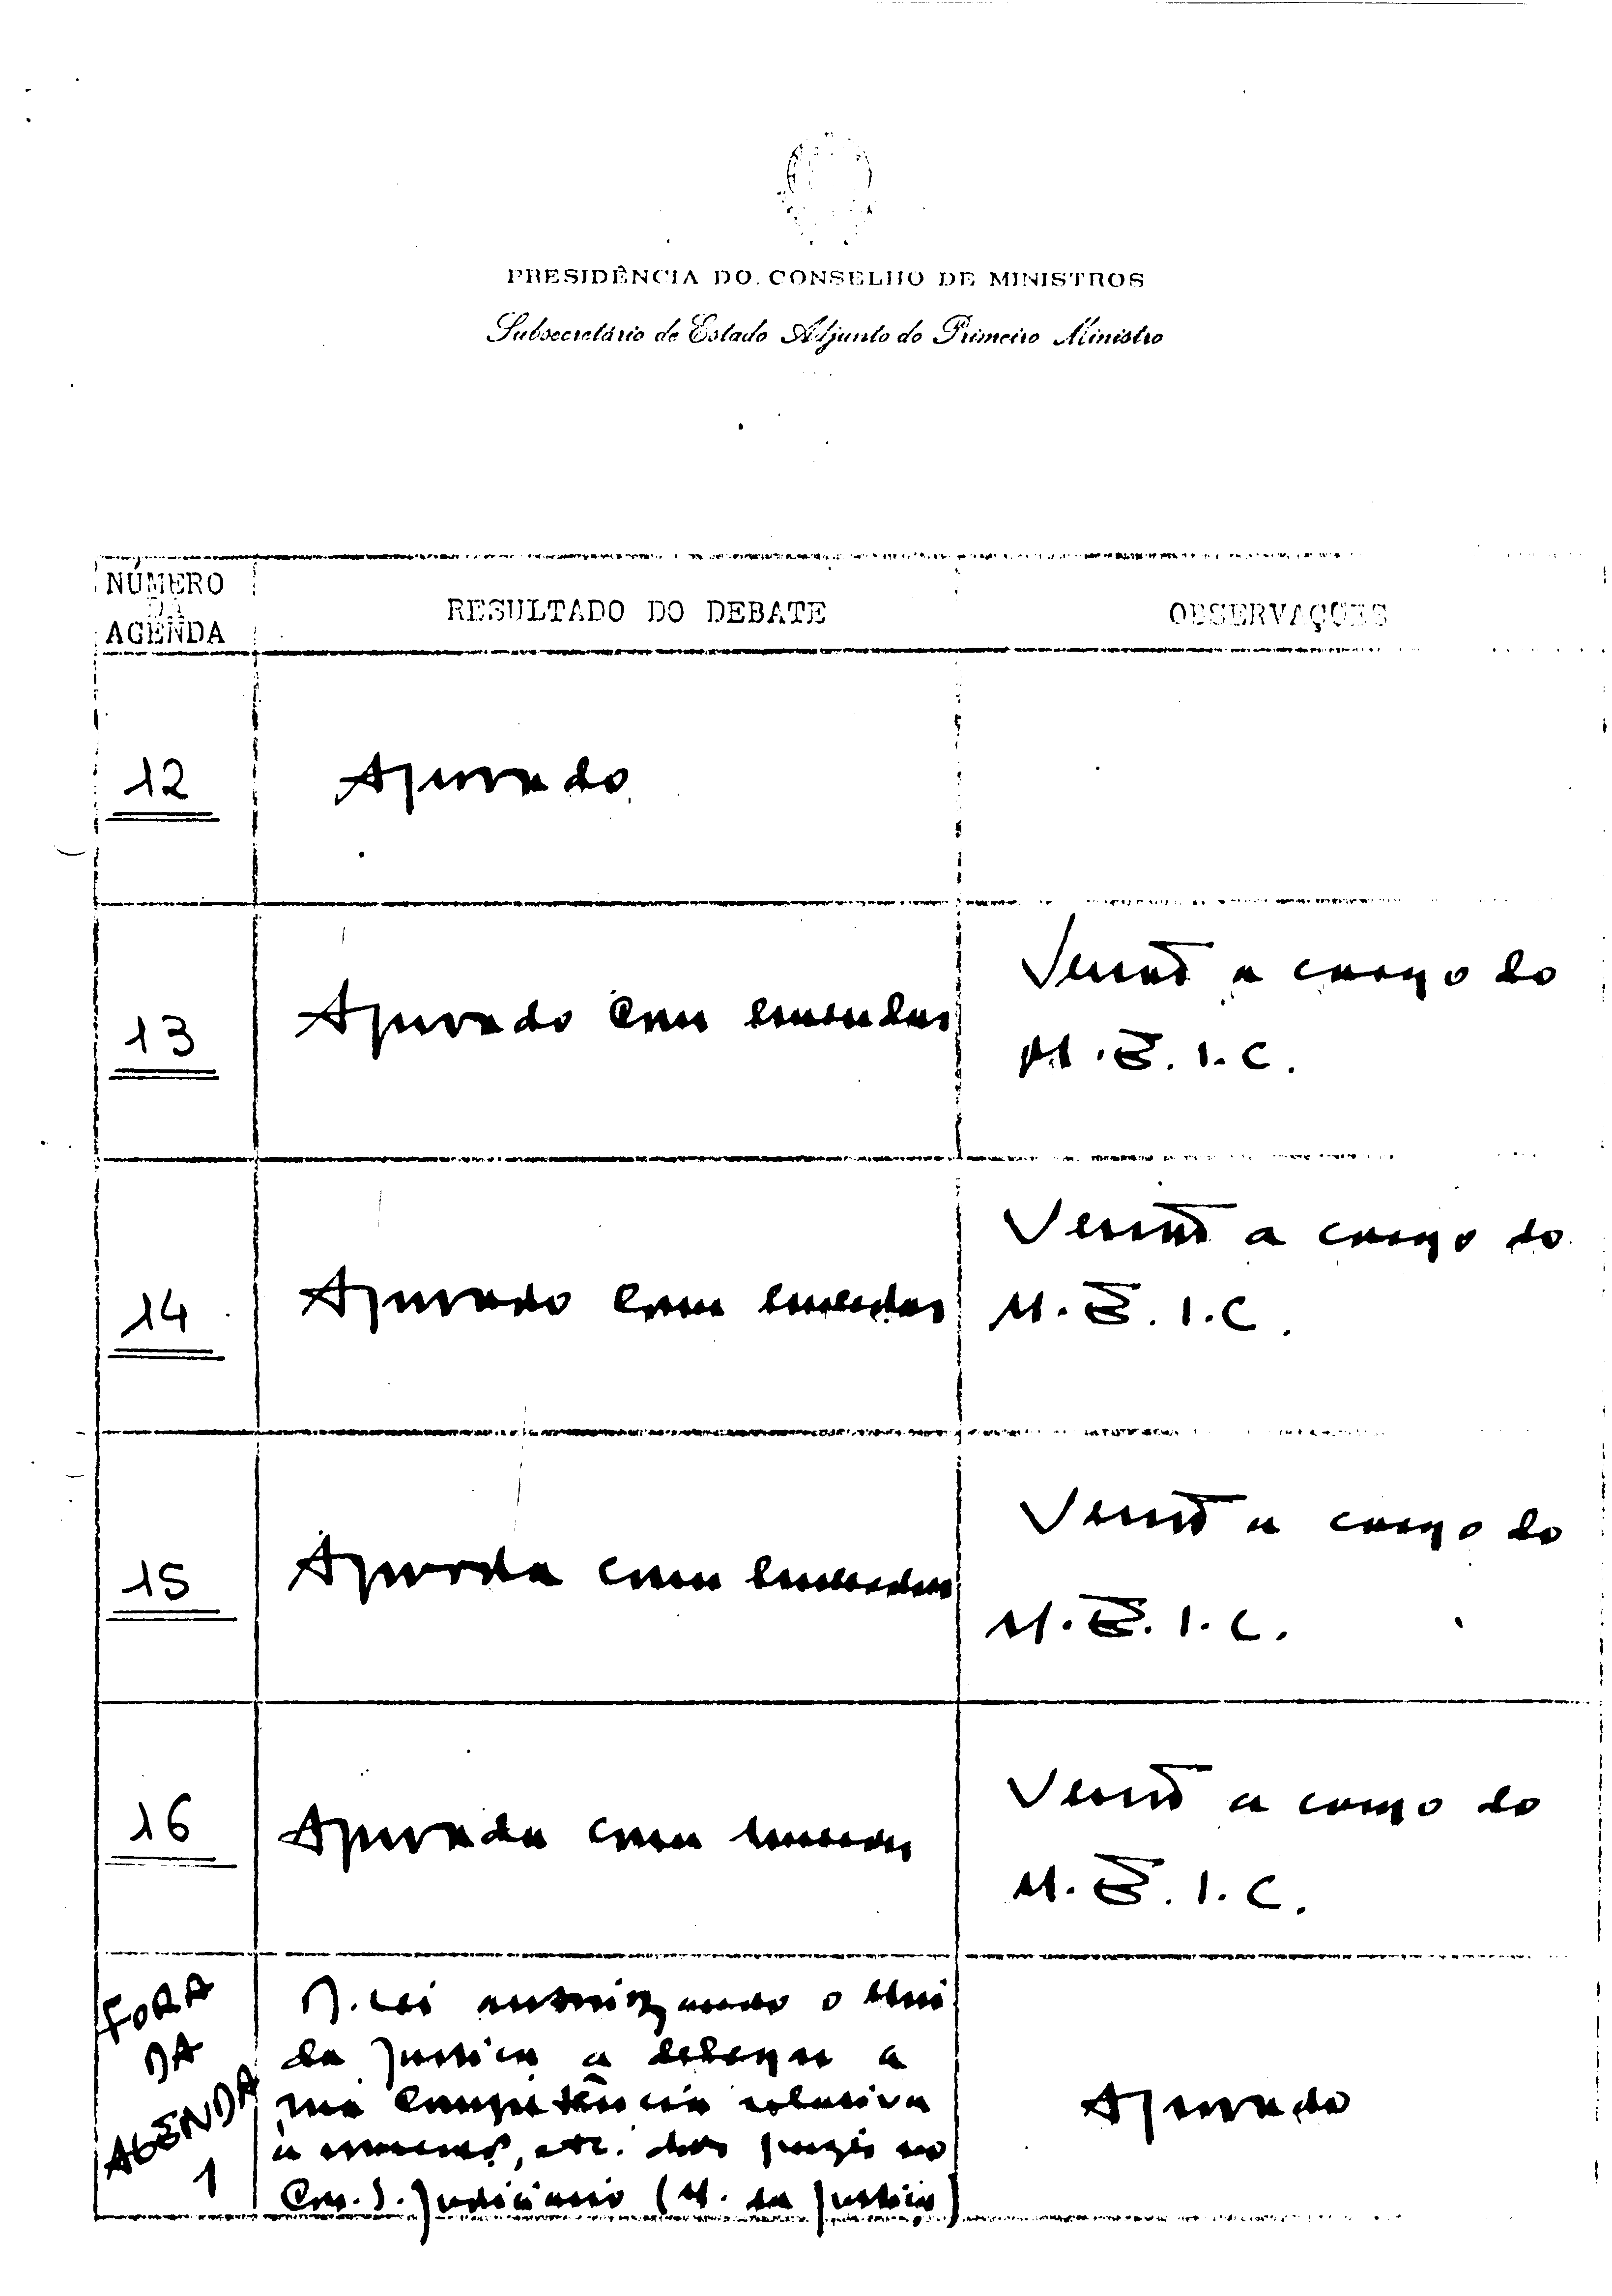 PRESIDÊNCIA DO CONSELHO DE MINISTROS
Subsecretário de Estado Adjunto do Primeiro Ministro
NÚMERO
DA
AGENDA
RESULTADO DO DEBATE
OBSERVAÇÕES
12
Aprovado
13
Aprovado com emendas
Versão a cargo do
M.E.I.C.
14
Aprovado com emendas
Versão a cargo do
M.E.I.C.
15
Aprovada com emendas
Versão a cargo do
M.E.I.C.
16
Aprovada com emendas
Versão a cargo do
M.E.I.C.
FORA
DA
AGENDA
1
D. Lei autorizando o Min.
da Justiça a delegar a
sua competência relativa
a, etc. dos juízes no
Con. S. Judiciário (M. da Justiça)
Aprovado